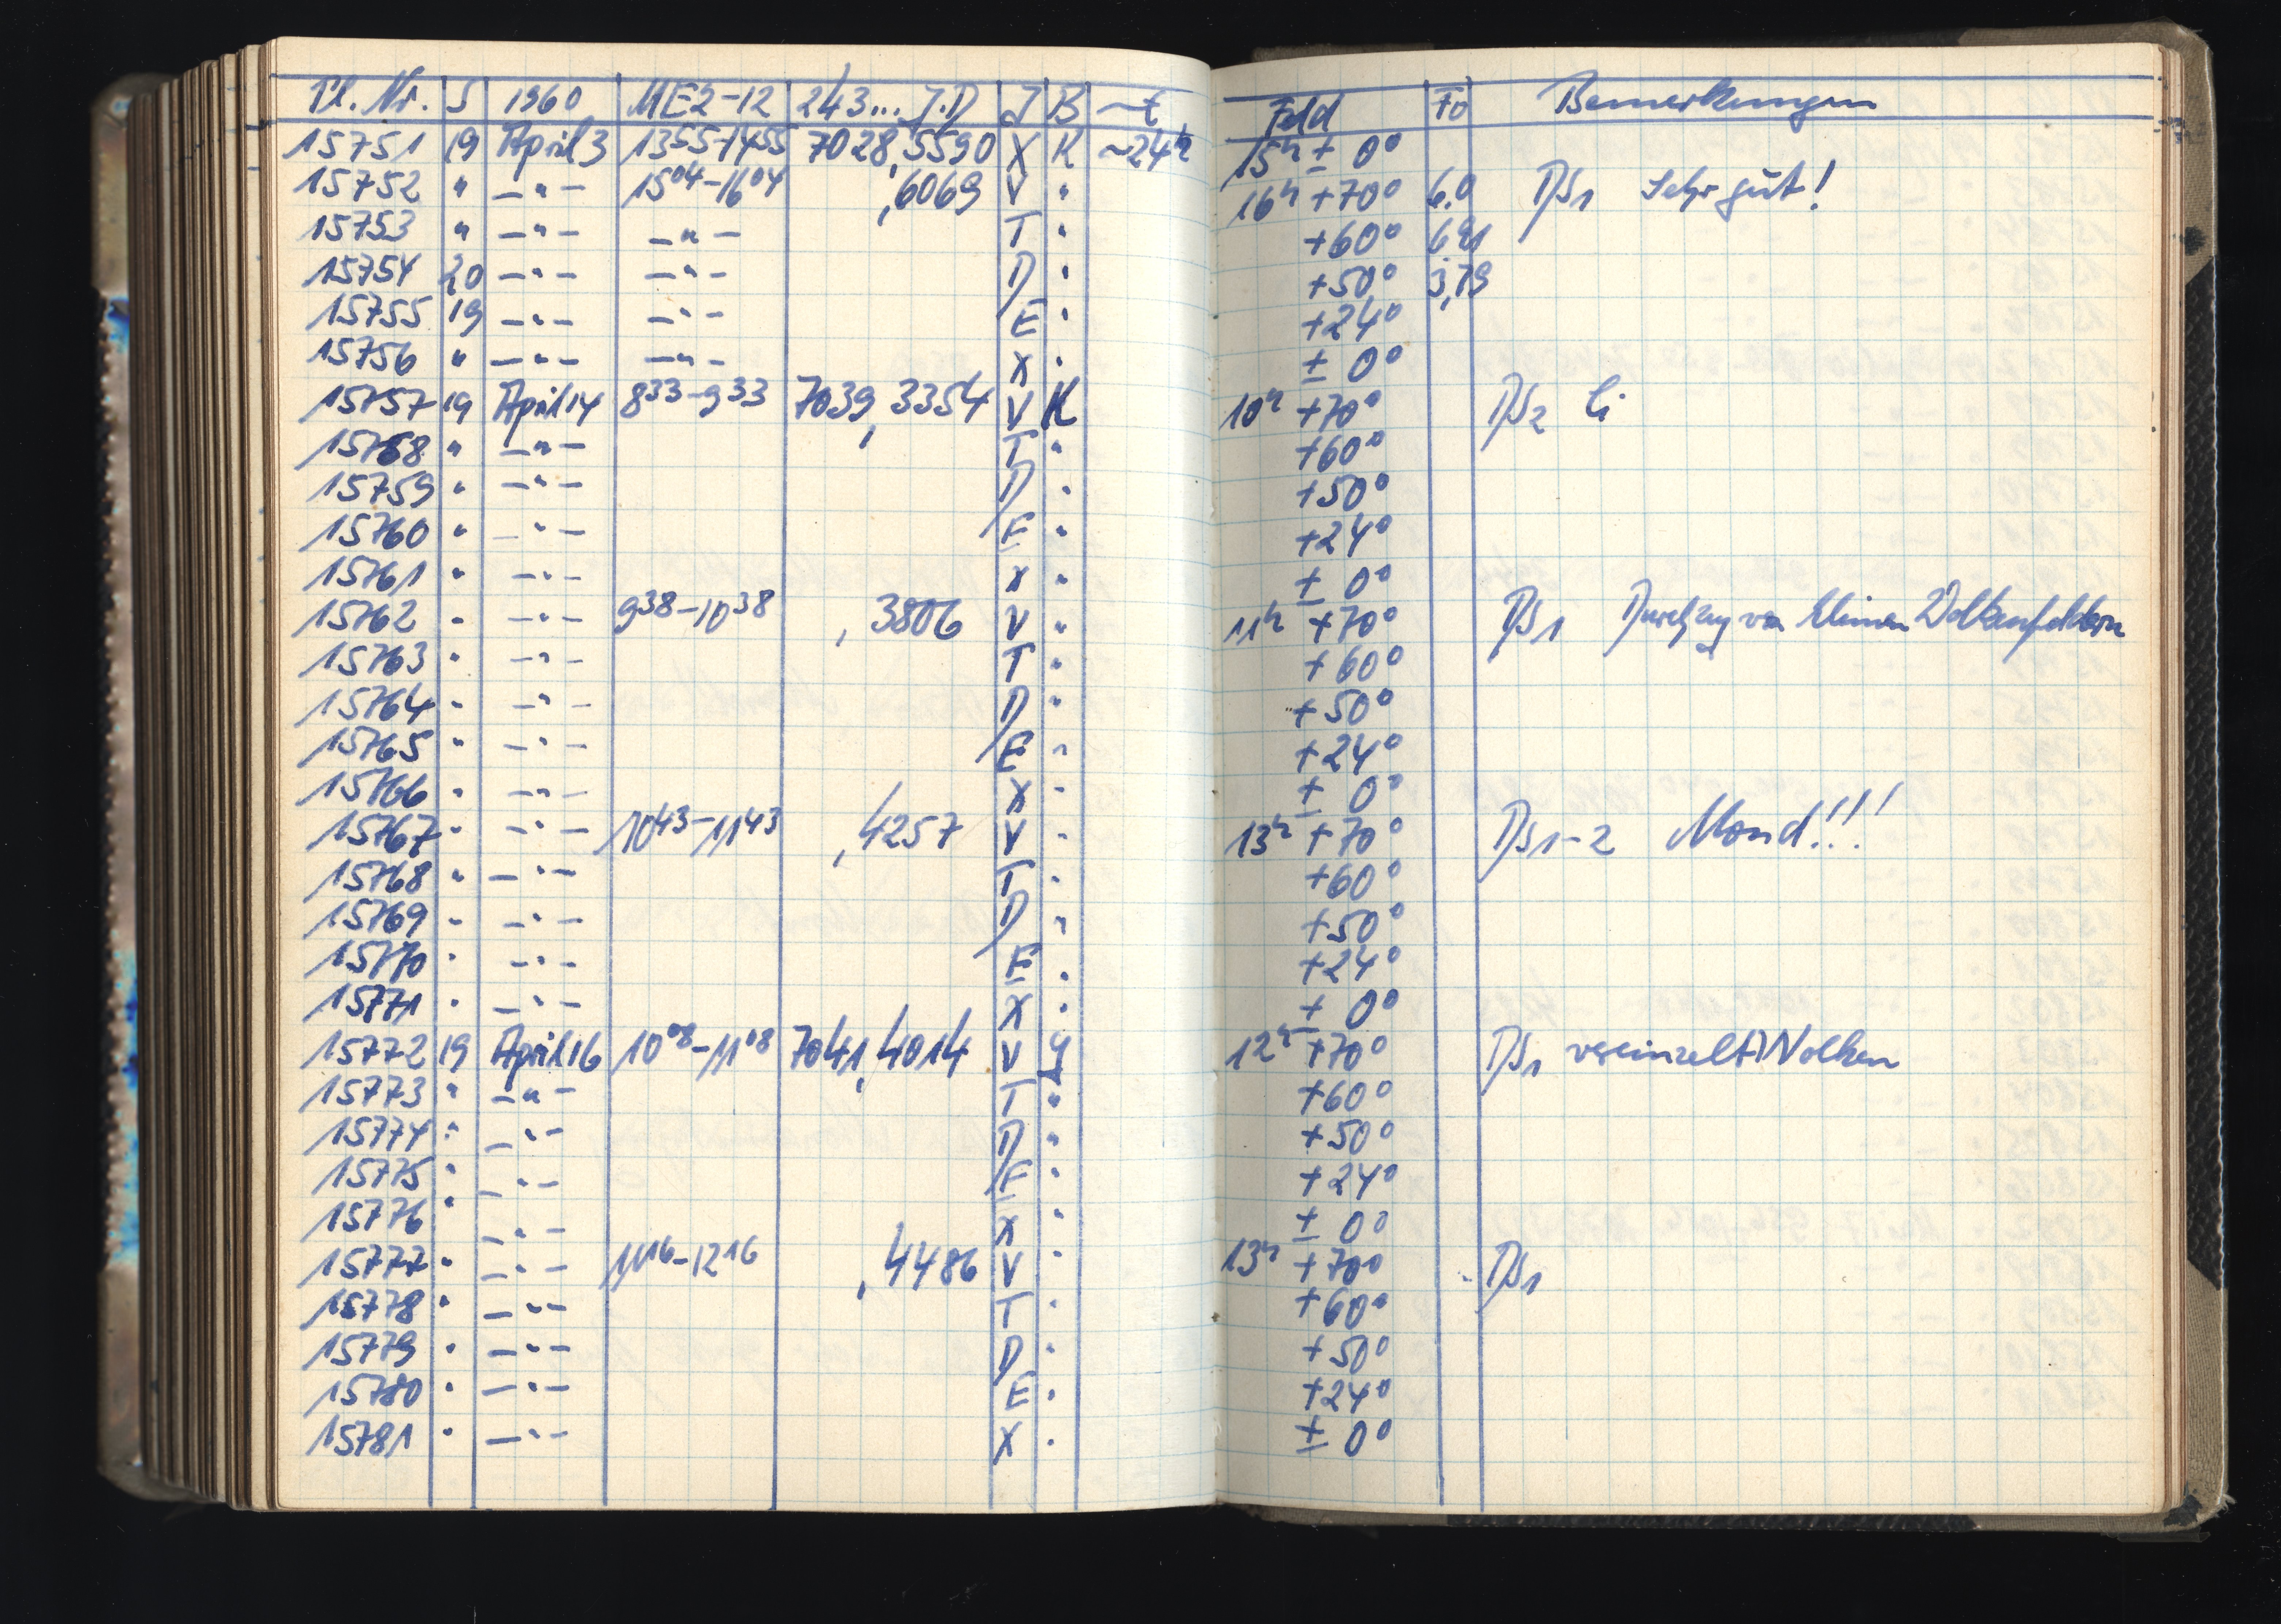 Pl. Nr. S 1960 ME2-12 243... J.D J B ~t Feld Fo Bemerkungen
15751 19 April 3 13 55-14 55 7028,5590 X K ~24h 15h ± 0°
15752 " -"- 15 04-16 04 ,6069 V " 16h +70° 6.0 DS1 Sehr gut!
15753 " -"- -"- T " +60°
15754 20 -"- -"- D " +50° 3,79
15755 19 -"- -"- E " +24°
15756 " -"- -"- X " ± 0°
15757 19 April 14 8 33-9 33 7039,3354 V K 10h +70° DS2 Ci
15758 " -"- T " +60°
15759 " -"- D " +50°
15760 " -"- E " +24°
15761 " -"- X " ± 0°
15762 " -"- 9 38-10 38 ,3806 V " 11h +70° DS1 Durchzug von kleinen Wolkenfeldern
15763 " -"- T " +60°
15764 " -"- D " +50°
15765 " -"- E " +24°
15766 " -"- X " ± 0°
15767 " -"- 10 43-11 43 ,4257 V " 13h +70° DS1-2 Mond!!!
15768 " -"- T " +60°
15769 " -"- D " +50°
15770 " -"- E " +24°
15771 " -"- X " ± 0°
15772 19 April 16 10 08-11 08 7041,4014 V 12h +70° DS1 vereinzelt Wolken
15773 " -"- T " +60°
15774 " -"- D " +50°
15775 " -"- E " +24°
15776 " -"- X " ± 0°
15777 " -"- 11 16-12 16 ,4486 V " 13h +70° DS1
15778 " -"- T " +60°
15779 " -"- D " +50°
15780 " -"- E " +24°
15781 " -"- X " ± 0°